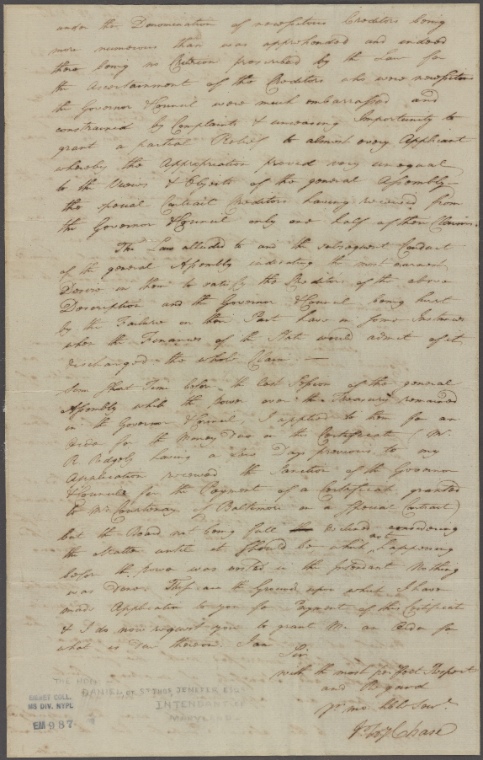 under the Denomination of necessitous Creditors being
more numerous than was apprehended and indeed
there being no Criterion prescribed by the Law for
the Ascertainment of the Creditors who were necessitous
the Governor & Council were much embarrassed and
constrained by Complaints & unceasing Importunity to
grant a partial Relief to almost every Applicant
whereby the Appropriation proved very unequal
to the Views & Objects of the general Assembly
the special Contract Creditors having received from
the Governor & Council only one half of their Claims.
The Law alluded to and the subsequent Conduct
of the general Assembly indicating the most earnest
Desire in them to satisfy the Creditors of the above
Description and the Governor & Council being hurt
by the Failure on their Part have in some Instances
when the Finances of the State would admit of it
discharged the whole Claim —
Some short Time before the last Session of the general
Assembly while the Power over the Treasury remained
in the Governor & Council, I applied to them for an
Order for the Money Due on the Certificate (Mr.
R. Ridgely having a few Days previous to my
Application received the Sanction of the Governor
& Council for the Payment of a Certificate granted
to Mr. of Baltimore on a special Contract)
but the Board not being full declined considering
the Matter until it should be which not happening
before the Power was vested in the Intendant Nothing
was done. These are the Grounds upon which I have
made Application to you for Payment of this Certificate
& I do now request you to grant Me an Order for
what is due thereon. I am
Sir
with the most perfect Respect
and Regard
Yr. mo. Obt. Serv.
Jer. T. Chase
THE HON.
DANIEL OF ST. THOS JENIFER ESQ
INTENDANT
MARYLAND
EMMET COLL.
MS DIV. NYPL
EM 987